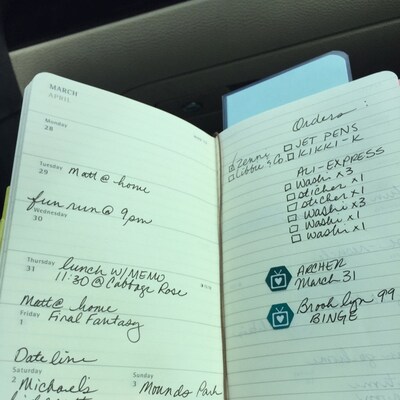 MARCH
APRIL
Monday
28
Tuesday
29
Matt @ home
fun run @ 9pm
Wednesday
30
Thursday
31
lunch w/MEMO
11:30 @ Cabbage Rose
Matt @ home
Friday
1
Final Fantasy
Date line
Saturday
2
Michael's
Sunday
3
Mounds Park
Orders:
Zenni
Libbie's Co.
JET PENS
KIKKI-K
ALI-EXPRESS
Washi x3
sticker x1
sticker x1
Washi x3
Washi x1
Washi x1
ARCHER
March 31
Brooklyn 99
BINGE